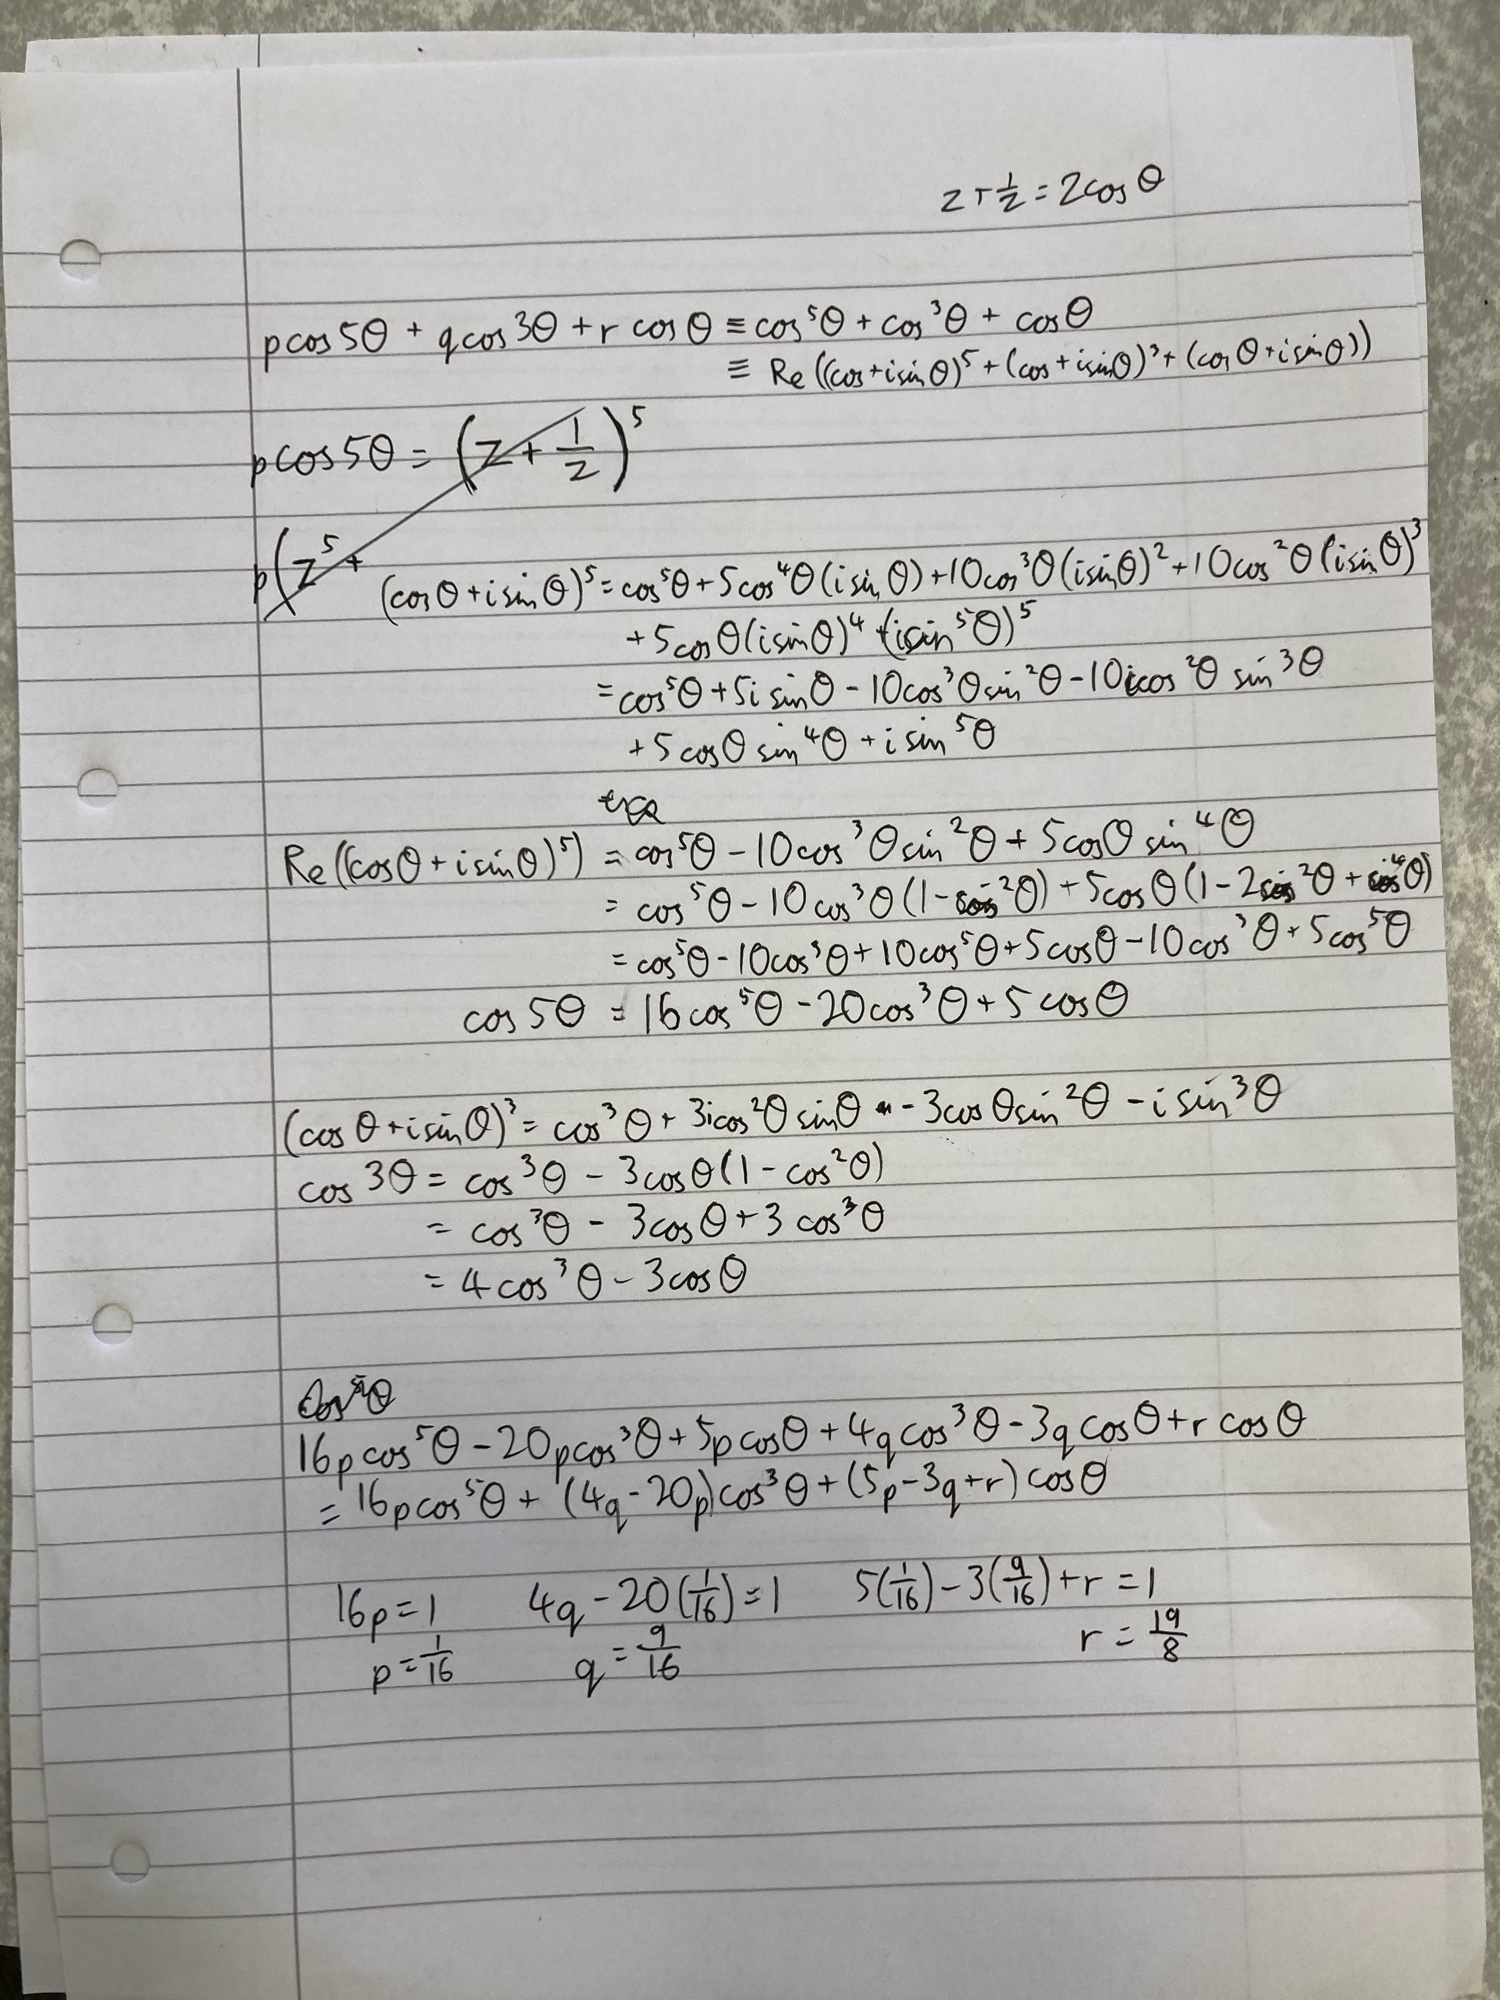 z + 1/z = 2cos θ
pcos 5θ + qcos 3θ + r cos θ ≡ cos⁵θ + cos³θ + cosθ
≡ Re((cos+isinθ)⁵ + (cos+isinθ)³ + (cosθ+isinθ))
pcos 5θ = (z + 1/z)⁵
p(z⁵ +
(cosθ+isinθ)⁵ = cos⁵θ + 5cos⁴θ(isinθ) + 10cos³θ(isinθ)² + 10cos²θ(isinθ)³
+ 5cosθ(isinθ)⁴ + (isin⁵θ)⁵
= cos⁵θ + 5i sinθ - 10cos³θsin²θ - 10icos²θ sin³θ
+ 5cosθ sin⁴θ + i sin⁵θ
Re((cosθ+isinθ)⁵) = cos⁵θ - 10cos³θsin²θ + 5cosθ sin⁴θ
= cos⁵θ - 10cos³θ(1-cos²θ) + 5cosθ(1-2cos²θ + cos⁴θ)
= cos⁵θ - 10cos³θ + 10cos⁵θ + 5cosθ - 10cos³θ + 5cos⁵θ
cos 5θ = 16cos⁵θ - 20cos³θ + 5 cosθ
(cosθ+isinθ)³ = cos³θ + 3icos²θ sinθ - 3cosθsin²θ - i sin³θ
cos 3θ = cos³θ - 3cosθ(1 - cos²θ)
= cos³θ - 3cosθ + 3 cos³θ
= 4cos³θ - 3cosθ
16pcos⁵θ - 20pcos³θ + 5pcosθ + 4qcos³θ - 3qcosθ + r cosθ
= 16pcos⁵θ + (4q - 20p)cos³θ + (5p - 3q + r) cosθ
16p = 1 4q - 20(1/16) = 1 5(1/16) - 3(9/16) + r = 1
p = 1/16 q = 9/16 r = 19/8